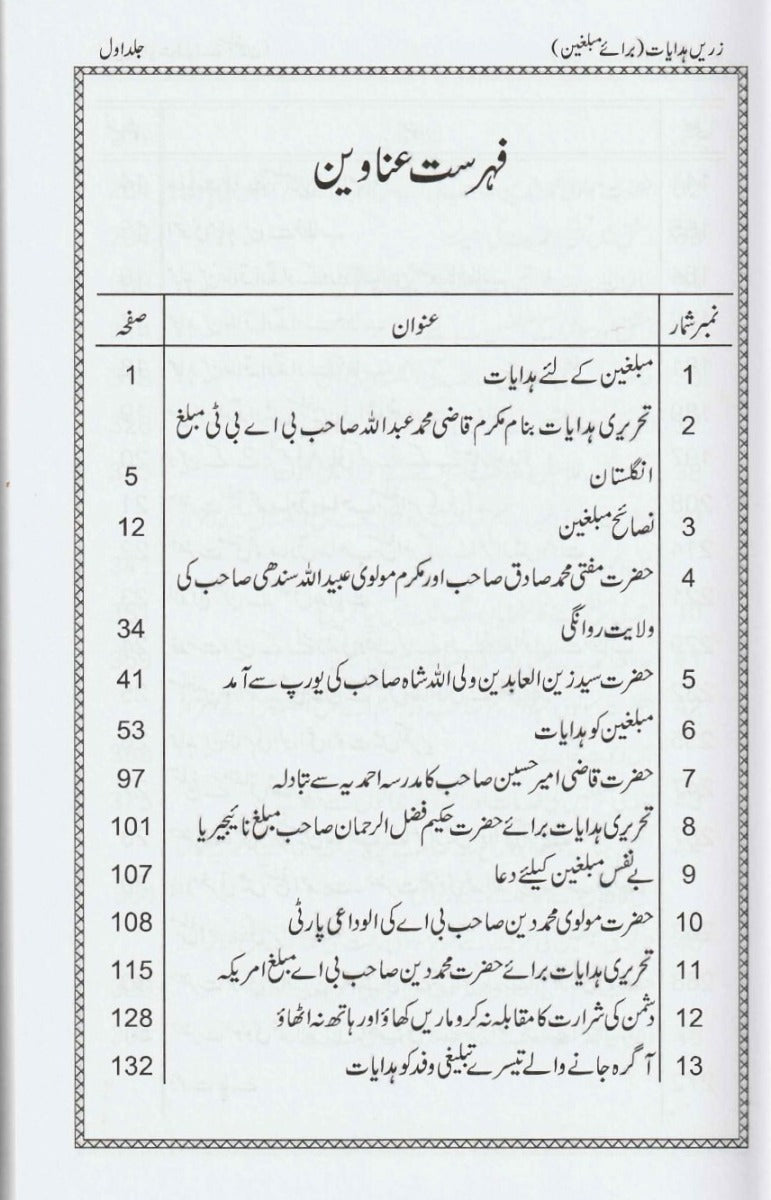 زریں ہدایات (برائے مبلغین) جلد اول
فہرست عناوین
نمبر شمار عنوان صفحہ
1 مبلغین کے لئے ہدایات 1
2 تحریری ہدایات بنام مکرم قاضی محمد عبداللہ صاحب بی اے بی ٹی مبلغ
انگلستان 5
3 نصائح مبلغین 12
4 حضرت مفتی محمد صادق صاحب اور مکرم مولوی عبیداللہ سندھی صاحب کی
ولایت روانگی 34
5 حضرت سید زین العابدین ولی اللہ شاہ صاحب کی یورپ سے آمد 41
6 مبلغین کو ہدایات 53
7 حضرت قاضی امیر حسین صاحب کا مدرسہ احمدیہ سے تبادلہ 97
8 تحریری ہدایات برائے حضرت حکیم فضل الرحمان صاحب مبلغ نائیجیریا 101
9 بے نفس مبلغین کیلئے دعا 107
10 حضرت مولوی محمد دین صاحب بی اے کی الوداعی پارٹی 108
11 تحریری ہدایات برائے حضرت محمد دین صاحب بی اے مبلغ امریکہ 115
12 دشمن کی شرارت کا مقابلہ نہ کرو ماریں کھاؤ اور ہاتھ نہ اٹھاؤ 128
13 آگرہ جانے والے تیسرے تبلیغی وفد کو ہدایات 132